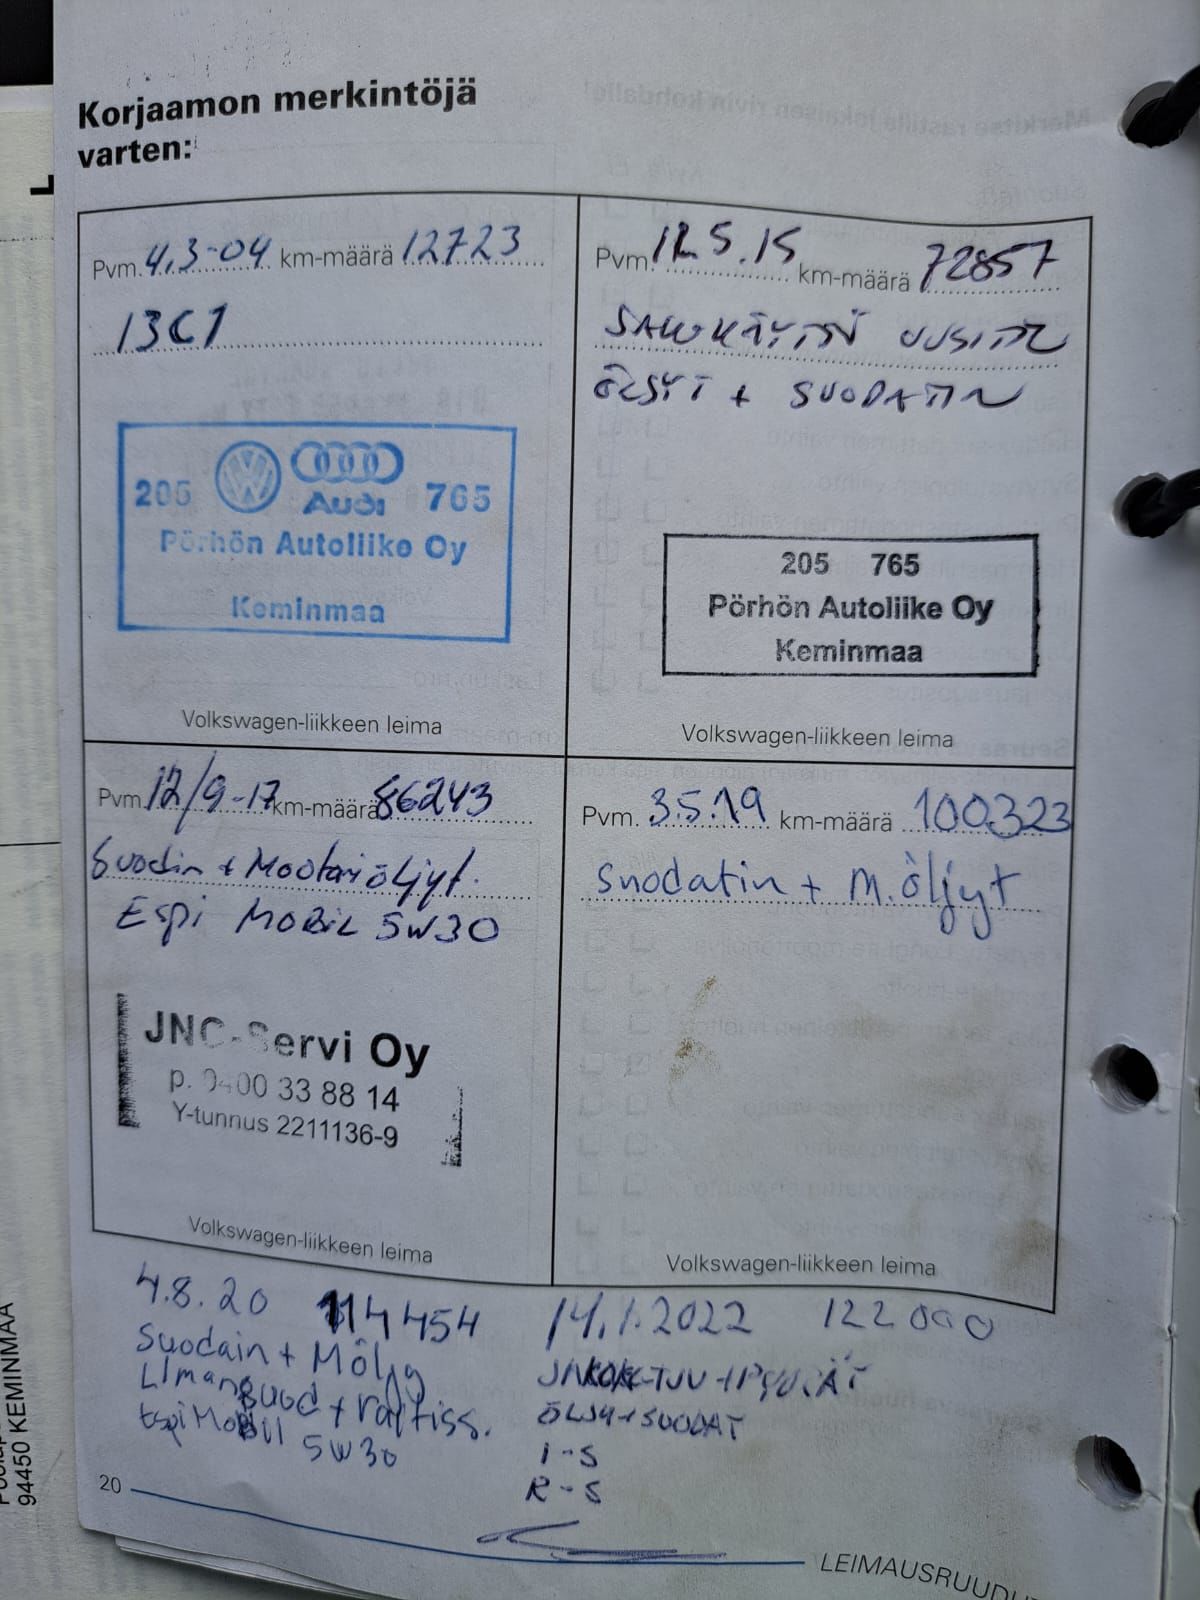 Korjaamon merkintöjä
varten:
Pvm. 4.3-04 km-määrä 12723
13C1
205 Audi 765
Pörhön Autoliike Oy
Keminmaa
Volkswagen-liikkeen leima
Pvm. 12.5.15 km-määrä 72857
ÖLJYT + SUODATIN
205 765
Pörhön Autoliike Oy
Keminmaa
Volkswagen-liikkeen leima
Pvm. 12/9-17 km-määrä 86243
Suodin + Moottoriöljyt.
Espi MOBIL 5W30
JNC-Servi Oy
p. 0400 33 88 14
Y-tunnus 2211136-9
Volkswagen-liikkeen leima
Pvm. 3.5.19 km-määrä 100323
Suodatin + M.öljyt
Volkswagen-liikkeen leima
4.8.20 114454
Suodain + Möljy
Limansuod + raitiss.
EspiMobil
5W30
14.1.2022 122000
ÖLJY+SUODAT
I-S
R-S
20
LEIMAUSRUUDU
94450 KEMINMAA